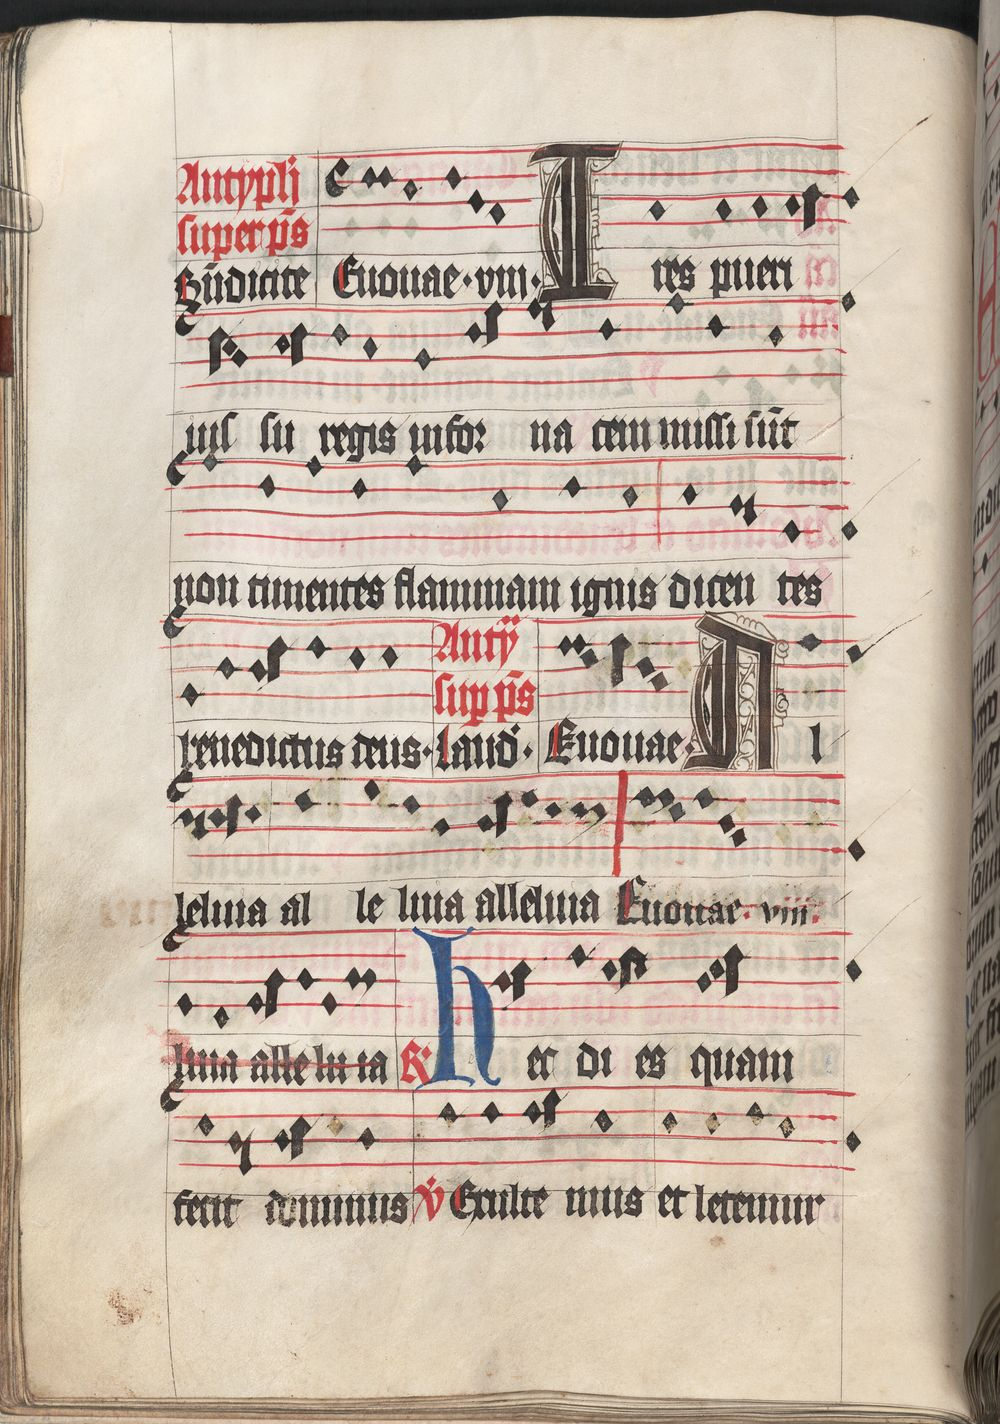 Antyph
super ps
Bn̄dicite Euouae · viii · Tres pueri
iuss su regis infor na cem missi sūt
non timentes flammam ignis dicen tes
Anty
sup ps
benedictus deus · laud · Euouae · A l
leluia al le luia alleluia Euouae · viii ·
luia alle lu ia R Hec di es quam
fecit dominus V Exulte mus et letemur